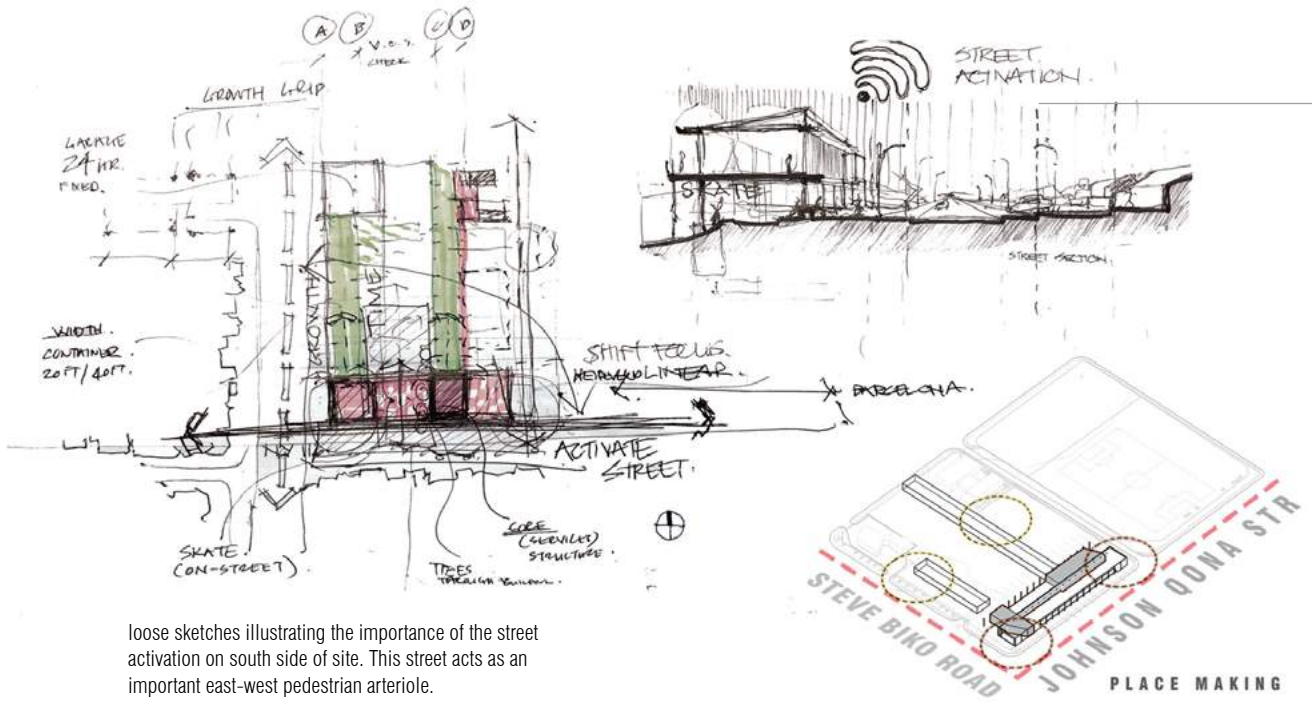 A B C D
CHECK
GROWTH GRID
24 HR.
FIXED.
WIDTH.
CONTAINER.
20FT/40FT.
GROWTH
TIME
SHIFT FOCUS.
LINEAR.
BARCELONA.
ACTIVATE
STREET.
SKATE.
(ON-STREET).
TREES
THROUGH BUILDING.
CORE
(SERVICES)
STRUCTURE.
STREET
ACTIVATION.
SKATE
STREET SECTION.
STEVE BIKO ROAD
JOHNSON QONA STR
PLACE MAKING
loose sketches illustrating the importance of the street
activation on south side of site. This street acts as an
important east-west pedestrian arteriole.